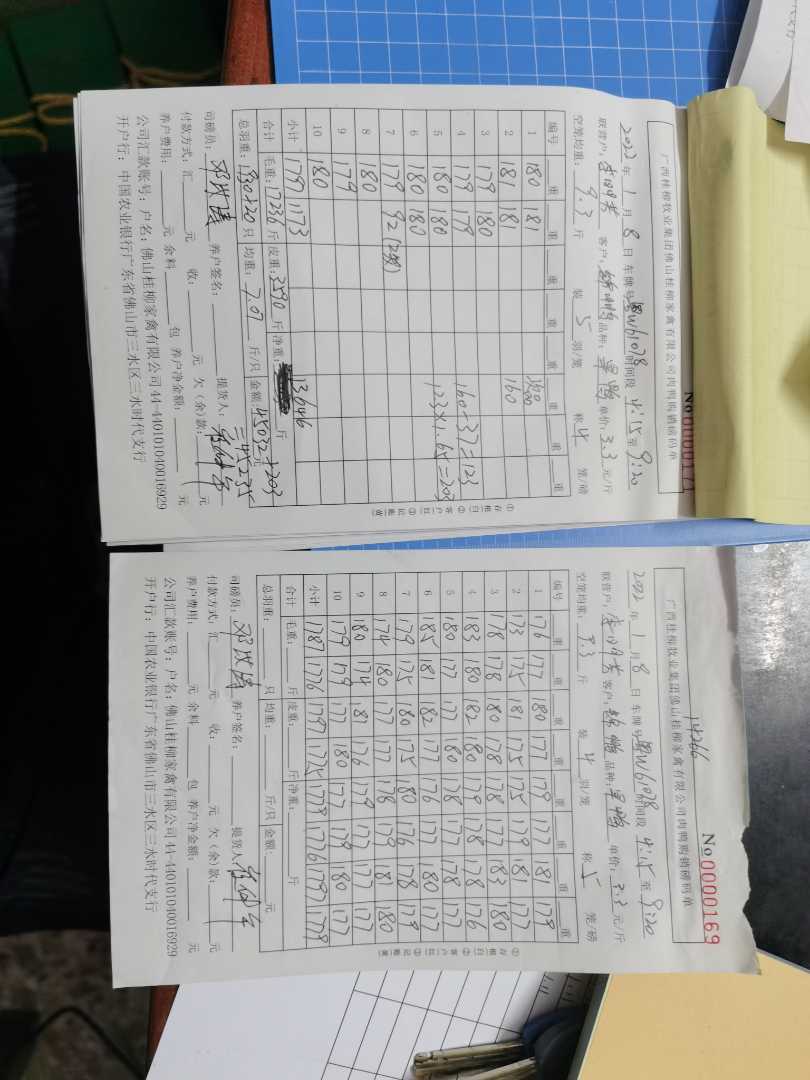 广西桂柳牧业集团佛山桂柳家禽有限公司肉鸭购销磅码单
No 0000171
2022 年 1 月 8 日 车牌号 时间段 4:15 至 9:20
联营户: 客户: 品种: 单价: 3.3 元/斤
空笼均重: 9.3 斤 装 5 羽/笼 称 4 笼/磅
编号 重 重 重 重 重 重 重
1 180 181
2 181 181 160
3 179 180
4 179 179 160-37=123
5 180 180 123×1.65=203
6 180 180
7 179 92
8 180
9 179
10 180
小计 1797 1173 13646
合计 毛重: 17236 斤 皮重: 3590 斤 净重: 斤
总羽重: 只 均重: 7.07 斤/只 金额: 45032+203 元
=45235
司磅员: 邓洪涛 养户签名: 提货人:
付款方式: 汇 元 收: 元 欠(余)款: 元
养户费用: 元 余料 包 养户净金额: 元
公司汇款账号: 户名: 佛山桂柳家禽有限公司 44-440101040016929
开户行: 中国农业银行广东省佛山市三水区三水时代支行
①存根(白) ②客户(红) ③记账(黄)
14266
广西桂柳牧业集团佛山桂柳家禽有限公司肉鸭购销磅码单
No 0000169
2022 年 1 月 8 日 车牌号 时间段 4:15 至 9:20
联营户: 客户: 品种: 单价: 3.3 元/斤
空笼均重: 9.3 斤 装 4 羽/笼 称 5 笼/磅
编号 重 重 重 重 重 重 重 重
1 176 177 180 177 179 177 181 179
2 173 175 181 175 175 179 181 177
3 178 178 180 178 178 177 183 180
4 183 180 182 180 179 178 178 176
5 180 177 177 180 178 177 178 177
6 185 181 182 177 176 177 180 177
7 179 175 180 175 180 176 178 179
8 174 180 177 177 178 179 181 180
9 180 174 181 176 179 177 177 177
10 179 179 177 180 177 179 180 177
小计 1787 1776 1797 1775 1779 1776 1797 1779
合计 毛重: 斤 皮重: 斤 净重: 斤
总羽重: 只 均重: 斤/只 金额: 元
司磅员: 邓洪涛 养户签名: 提货人:
付款方式: 汇 元 收: 元 欠(余)款: 元
养户费用: 元 余料 包 养户净金额: 元
公司汇款账号: 户名: 佛山桂柳家禽有限公司 44-440101040016929
开户行: 中国农业银行广东省佛山市三水区三水时代支行
①存根(白) ②客户(红) ③记账(黄)